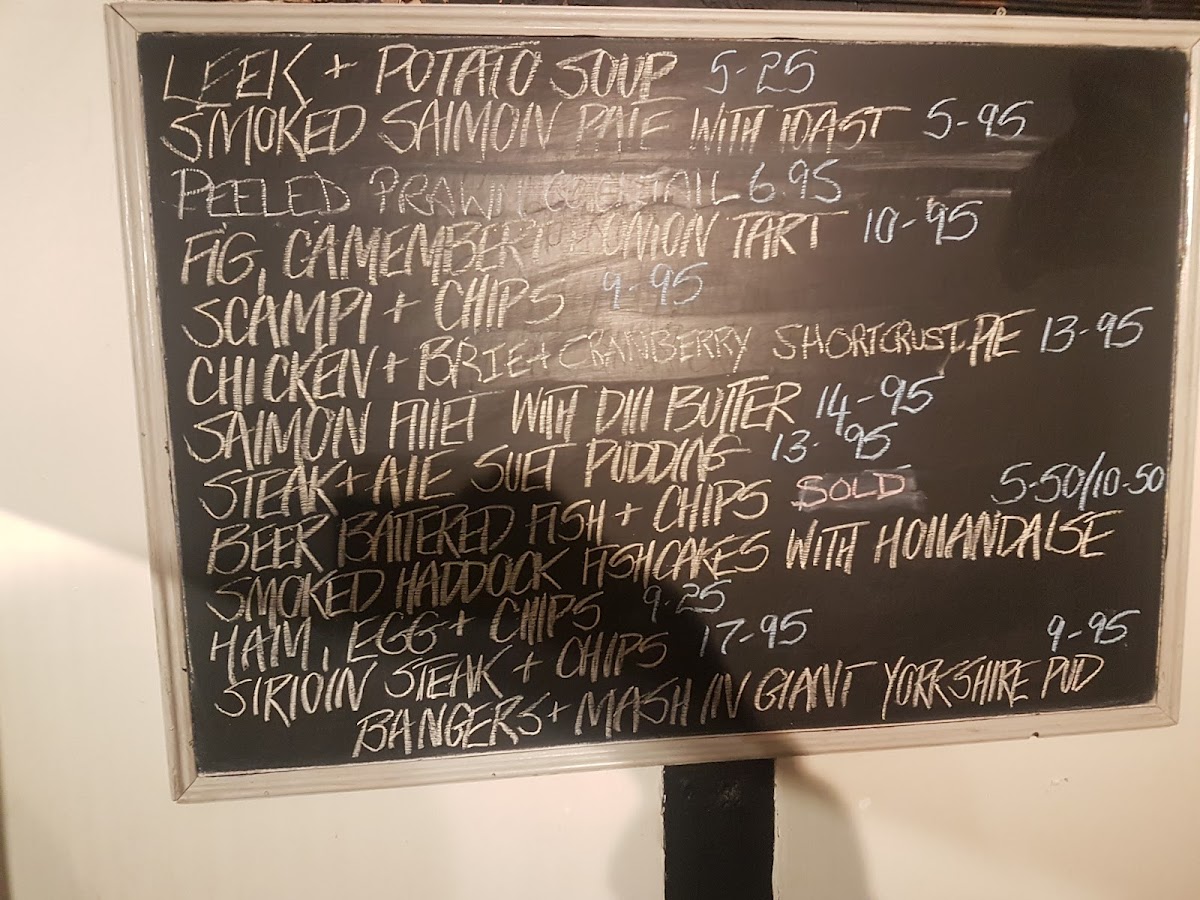 LEEK + POTATO SOUP 5-25
SMOKED SALMON PATE WITH TOAST 5-95
PEELED PRAWN COCKTAIL 6.95
FIG, CAMEMBERT + ONION TART 10-95
SCAMPI + CHIPS 9-95
CHICKEN + BRIE + CRANBERRY SHORTCRUST PIE 13-95
SALMON FILLET WITH DILL BUTTER 14-95
STEAK + ALE SUET PUDDING 13-95
BEER BATTERED FISH + CHIPS SOLD
SMOKED HADDOCK FISHCAKES WITH HOLLANDAISE 5-50/10-50
HAM, EGG + CHIPS 9-25
SIRLOIN STEAK + CHIPS 17-95
BANGERS + MASH IN GIANT YORKSHIRE PUD 9-95